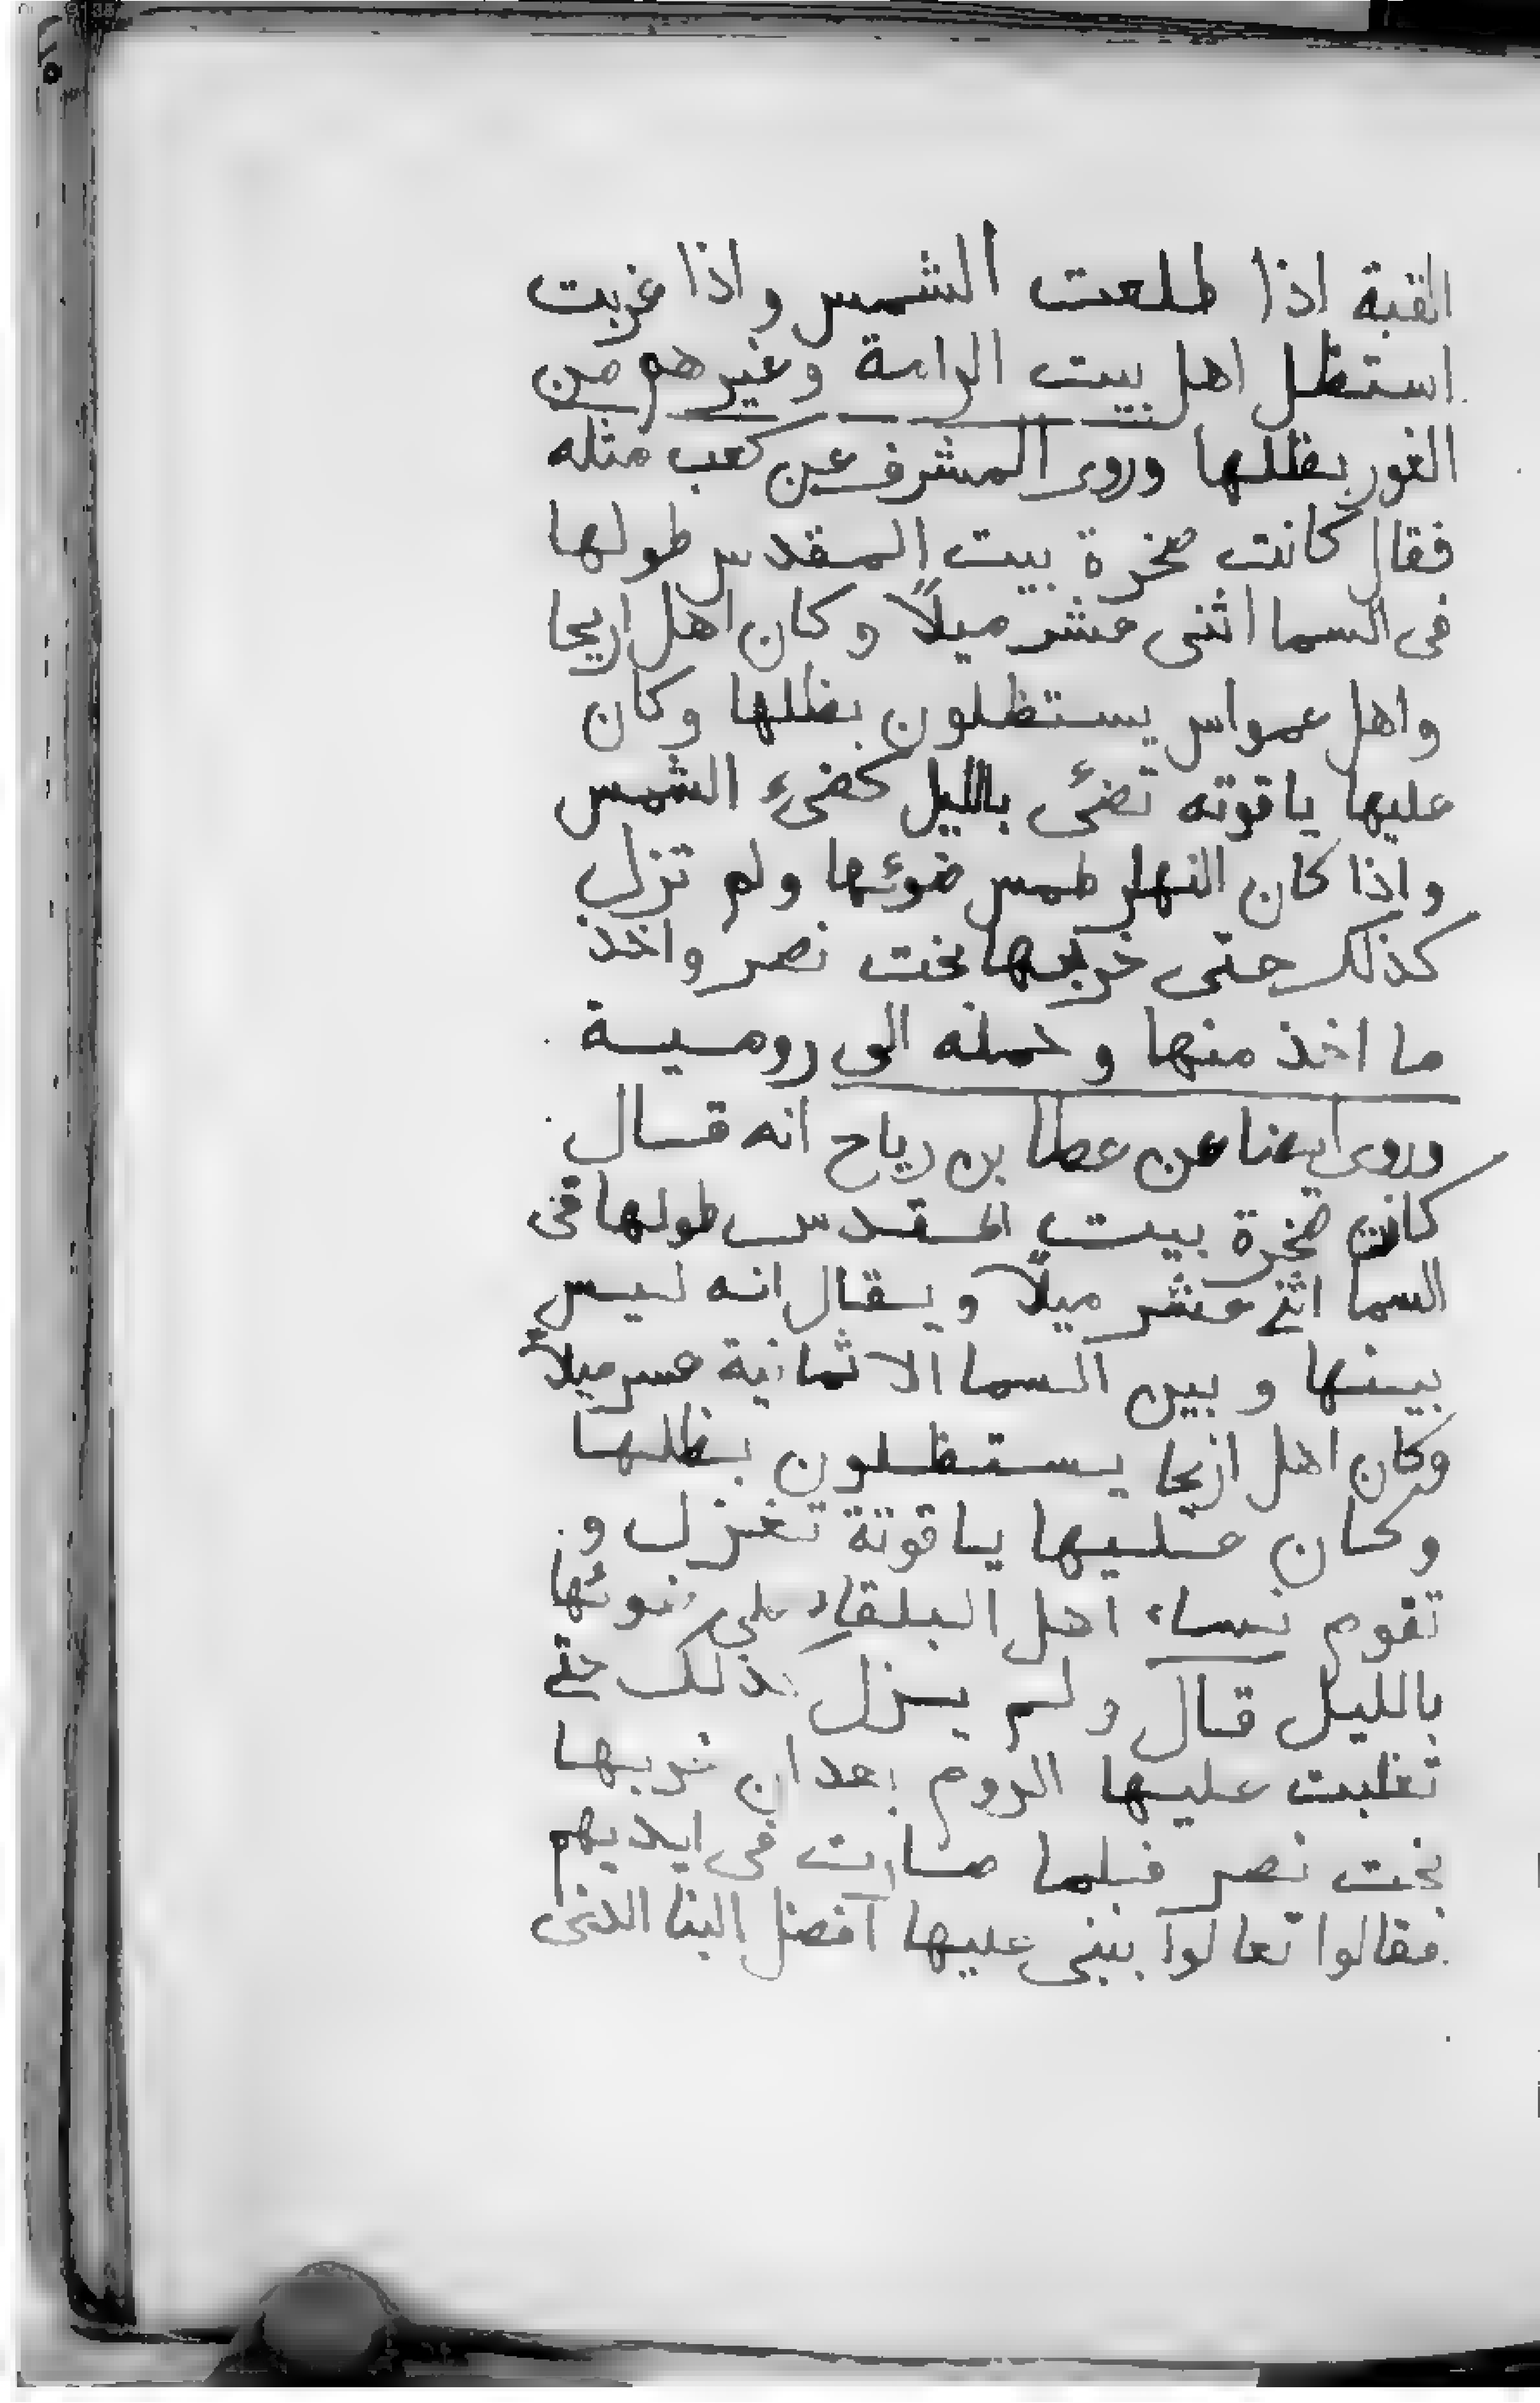 القبة اذا طلعت الشمس واذا غربت
استظل اهل بيت الرامة وغيرهم من
الغور بظللها وروى المشرف عن كعب مثله
فقال كانت صخرة بيت المقدس طولها
فى السما اثنى عشر ميلاً وكان اهل اريحا
واهل عمواس يستظلون بظللها وكان
عليها ياقوته تضئ بالليل كضىء الشمس
واذا كان النهار طمس ضوئها ولم تزل
كذلك حتى خربها بخت نصر واخذ
ما اخذ منها وحمله الى رومية
وروى ايضا عن عطا بن رباح انه قال
كانت صخرة بيت المقدس طولها فى
السما اثنى عشر ميلاً ويقال انه ليس
بينها وبين السما الا ثمانية عشر ميلاً
وكان اهل اريحا يستظلون بظلها
وكان عليها ياقوتة تغزل و
تقوم نساء اهل البلقاء على ضوئها
بالليل قال ولم يزل كذلك حتى
تغلبت عليها الروم بعد ان خربها
بخت نصر فلما صارت فى ايديهم
فقالوا تعالوا نبنى عليها افضل البنا الذى